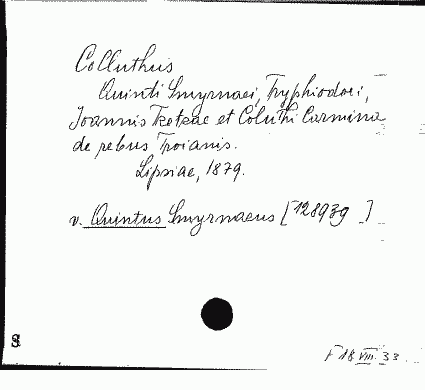 Colluthus
Quinti Smyrnaei, Tryphiodori,
Joannis Tzetzae et Coluthi Carmina
de rebus Troianis.
Lipsiae, 1879.
v. Quintus Smyrnaeus [128939]
F 18 VIII. 33.